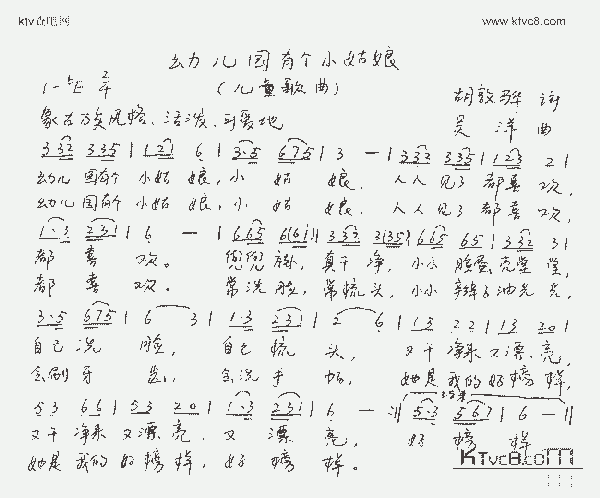 www.ktvc8.com
幼儿园有个小姑娘
(儿童歌曲)
1=E 2/4
胡敦骅 词
吴洋 曲
蒙古族风格、活泼、可爱地
3 32 3 35 | 1 21 6 | 3·5 675 | 3 — | 3 32 3 35 | 1 23 2 |
幼儿园有个小姑娘,小姑娘,人人见了都喜欢,
幼儿园有个小姑娘,小姑娘,人人见了都喜欢,
1·3 231 | 6 — | 6 65 6161 | 3 32 3135 | 6 65 65 | 3 32 3 |
都喜欢。兜兜,真干净,小小脸蛋亮堂堂,
都喜欢。常洗,常梳头,小小辫子油光亮,
3·5 675 | 6 3 | 1·3 231 | 2 6 | 13 22 | 13 20 |
自己洗脸,自己梳头,又干净来又漂亮,
会刷牙,会洗手,她是我的好榜样,
53 66 | 53 20 | 1·3 231 | 6 — :| 5·3 567 | 6 — ||
又干净来又漂亮,又漂亮,好榜样
她是我的好榜样,好榜样。
KTvc8.com